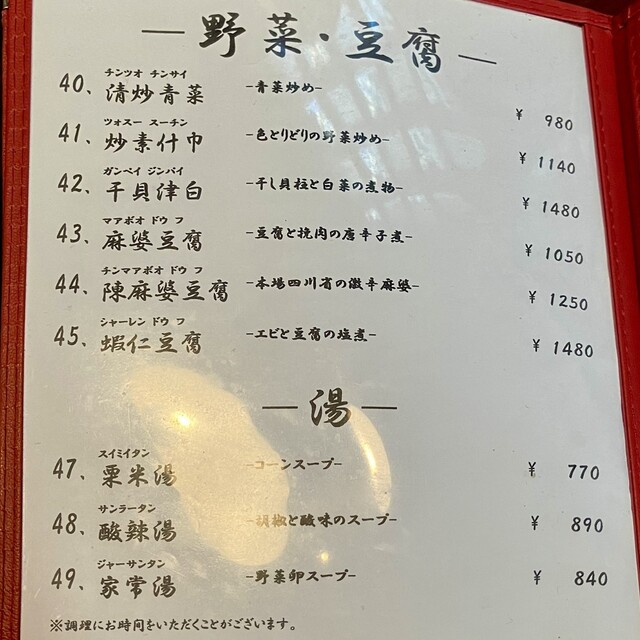 野菜・豆腐
チンツオ チンサイ
40、清炒青菜 -青菜炒め- ¥ 980
ツォスー スーチン
41、炒素什巾 -色とりどりの野菜炒め- ¥ 1140
ガンベイ ジンバイ
42、干貝津白 -干し貝柱と白菜の煮物- ¥ 1480
マアボオ ドウ フ
43、麻婆豆腐 -豆腐と挽肉の唐辛子煮- ¥ 1050
チンマアボオ ドウ フ
44、陳麻婆豆腐 -本場四川省の激辛麻婆- ¥ 1250
シャーレン ドウ フ
45、蝦仁豆腐 -エビと豆腐の塩煮- ¥ 1480
湯
スイミイタン
47、粟米湯 -コーンスープ- ¥ 770
サンラータン
48、酸辣湯 -胡椒と酸味のスープ- ¥ 890
ジャーサンタン
49、家常湯 -野菜卵スープ- ¥ 840
※調理にお時間をいただくことがございます。